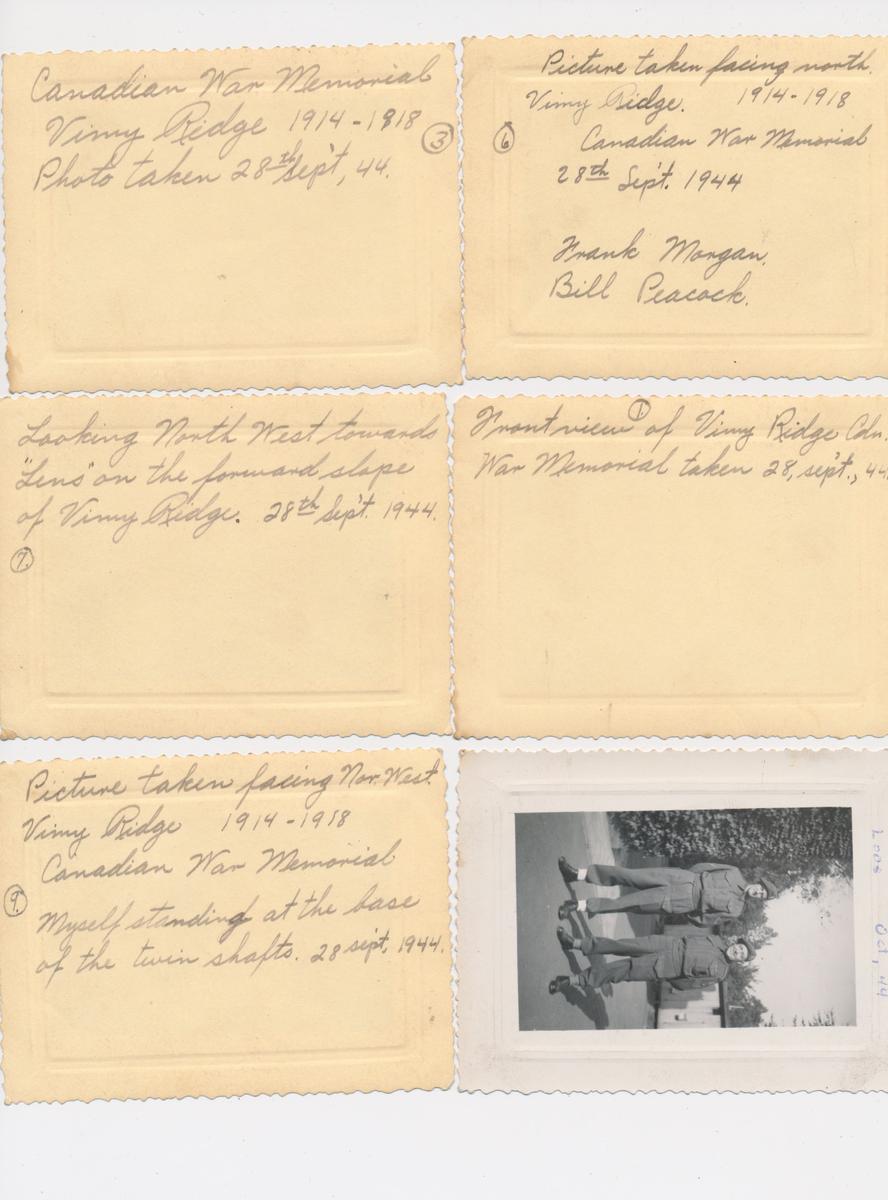 Canadian War Memorial
Vimy Ridge 1914-1918
③
Photo taken 28th Sep't, 44.
Picture taken facing north.
Vimy Ridge. 1914-1918
⑥
Canadian War Memorial
28th Sep't. 1944
Frank Morgan.
Bill Peacock.
Looking North West towards
"Lens" on the forward slope
of Vimy Ridge. 28th Sep't. 1944.
⑦
①
Front view of Vimy Ridge Cdn.
War Memorial taken 28, sep't., 44.
Picture taken facing Nor. West.
Vimy Ridge 1914-1918
Canadian War Memorial
⑨
Myself standing at the base
of the twin shafts. 28 sep't, 1944.
Loos Oct, 44